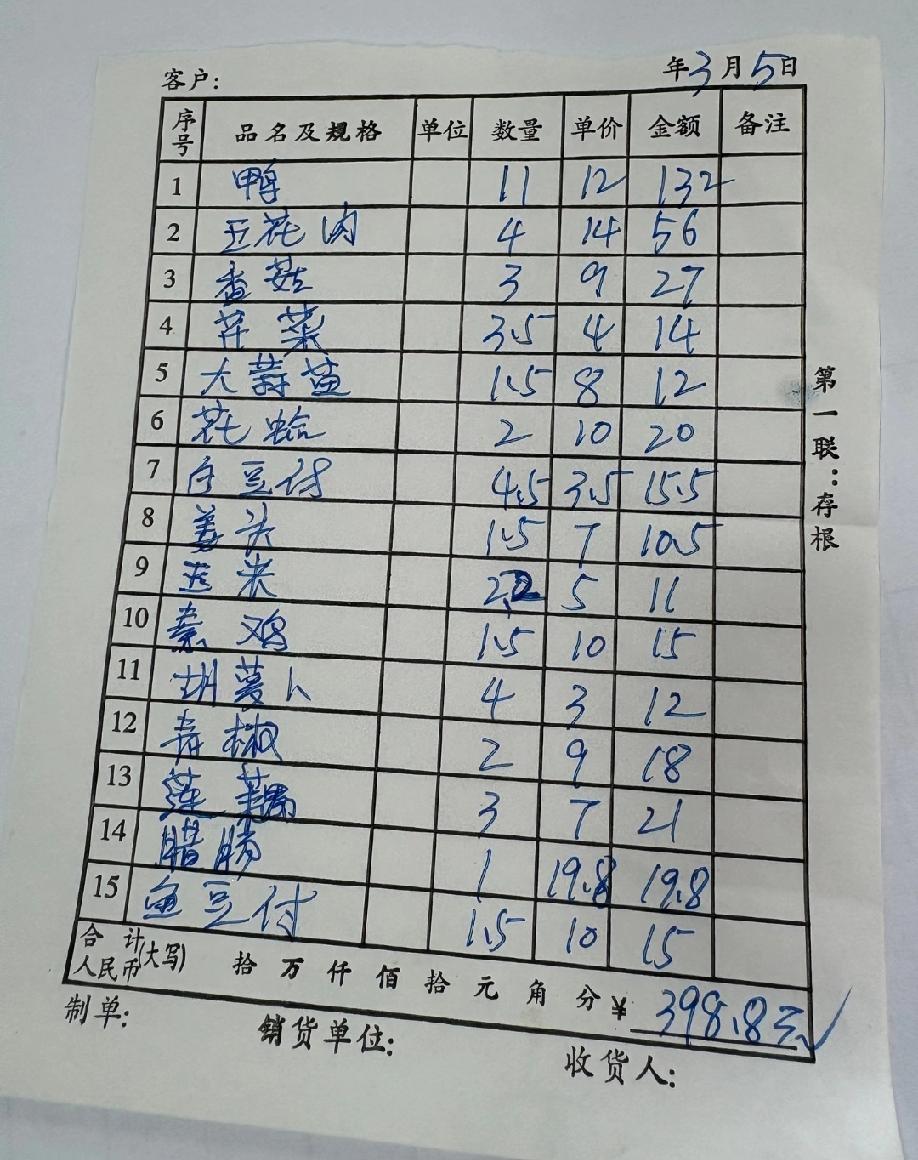 客户: 年3月5日
序号 品名及规格 单位 数量 单价 金额 备注
1 鸭 11 12 132
2 五花肉 4 14 56
3 香菇 3 9 27
4 芹菜 3.5 4 14
5 大蒜苗 1.5 8 12
6 花蛤 2 10 20
7 白豆付 4.5 3.5 15.5
8 姜头 1.5 7 10.5
9 玉米 2.2 5 11
10 鸡 1.5 10 15
11 胡萝卜 4 3 12
12 青椒 2 9 18
13 莲藕 3 7 21
14 腊肠 1 19.8 19.8
15 鱼豆付 1.5 10 15
合计人民币(大写) 拾万仟佰拾元角分 ¥ 398.8元
制单: 销货单位: 收货人:
第一联:存根